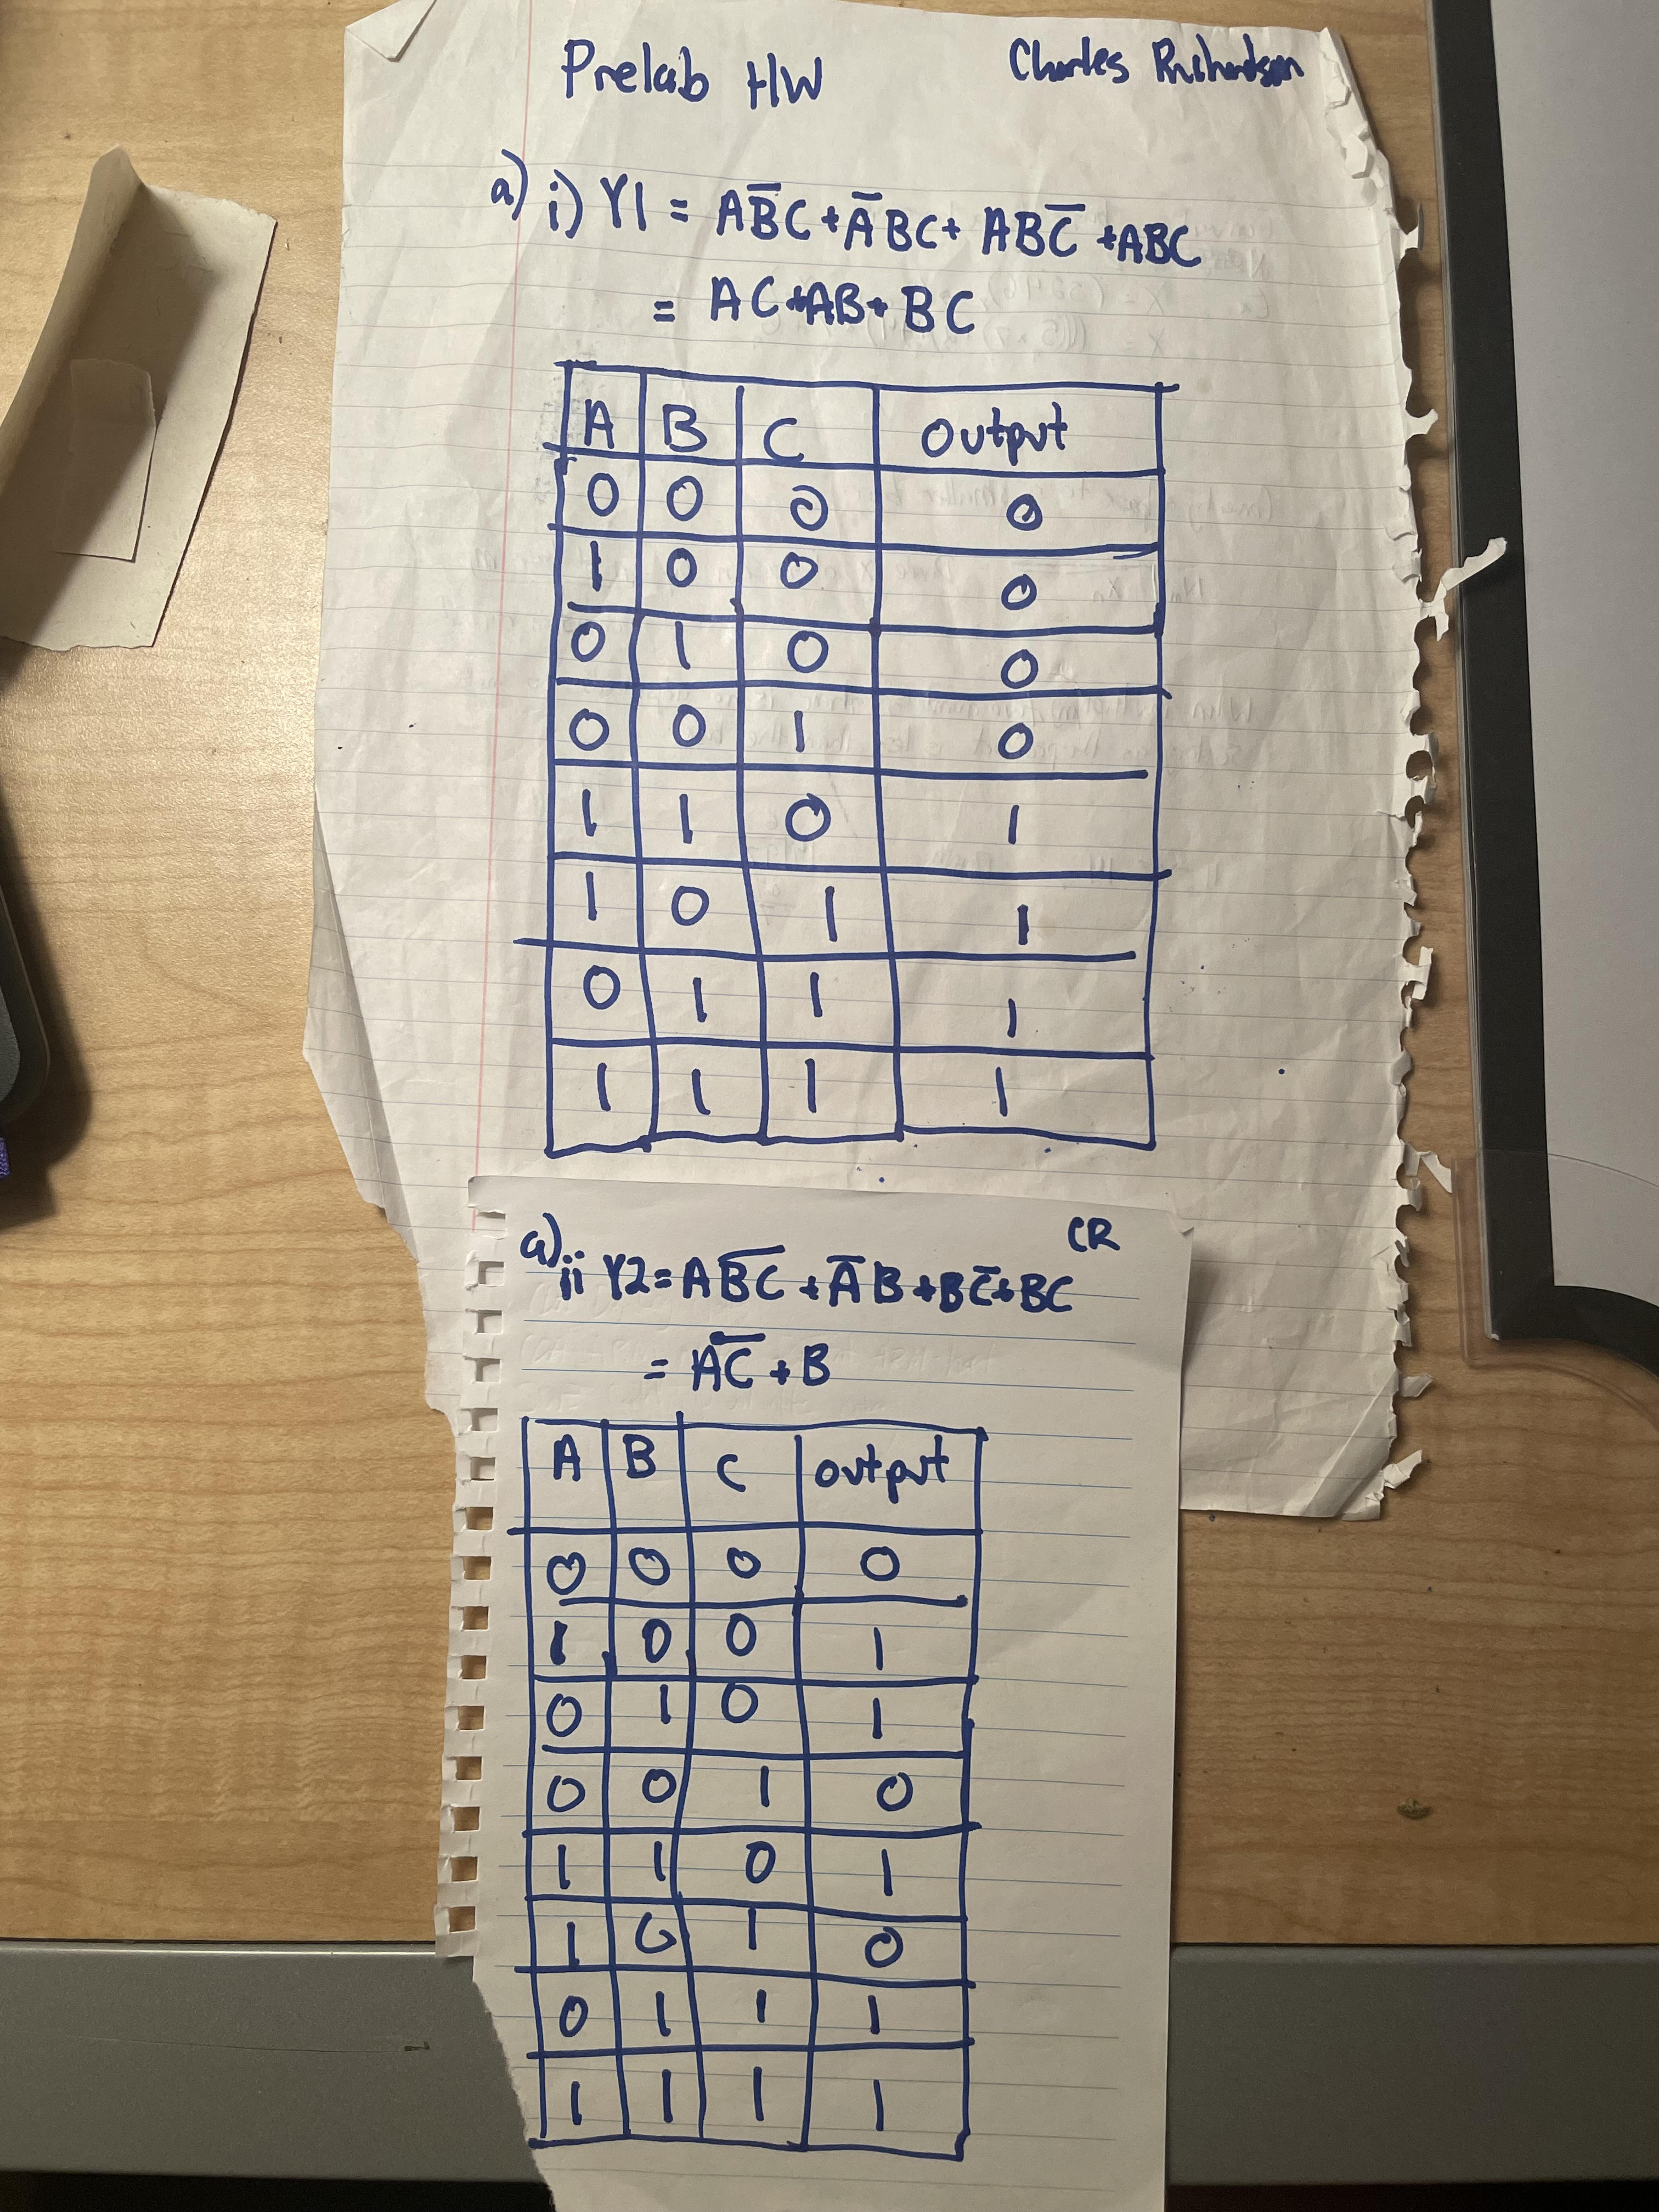 Prelab HW Charles Richardson
a) i) Y1 = AB̅C + A̅BC + ABC̅ + ABC
= AC + AB + BC
A B C Output
0 0 0 0
1 0 0 0
0 1 0 0
0 0 1 0
1 1 0 1
1 0 1 1
0 1 1 1
1 1 1 1
CR
a) ii Y2 = AB̅C̅ + A̅B + BC̅ + BC
= AC̅ + B
A B C output
0 0 0 0
1 0 0 1
0 1 0 1
0 0 1 0
1 1 0 1
1 0 1 0
0 1 1 1
1 1 1 1